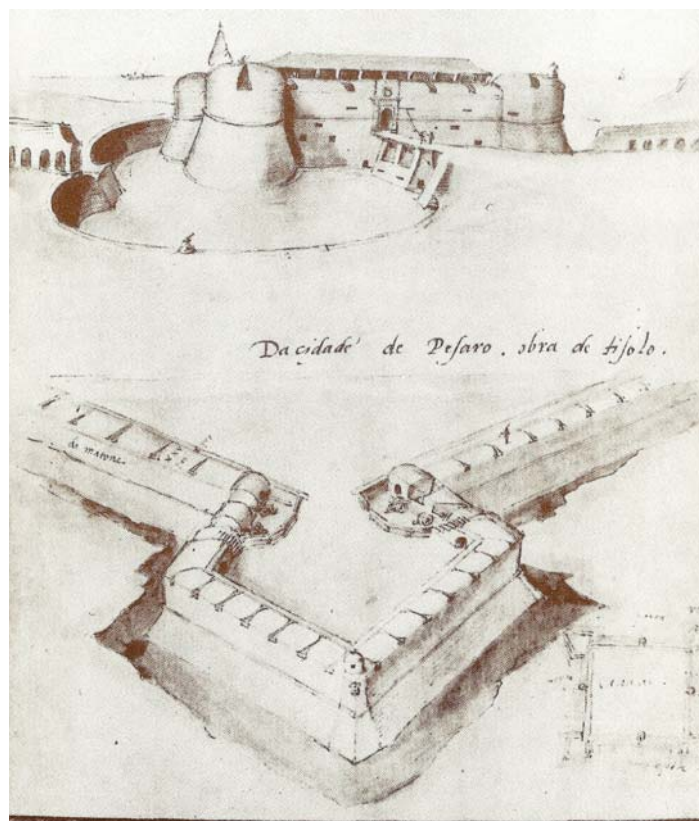 Da çidade de Pesaro. obra de tijolo.
de matone.